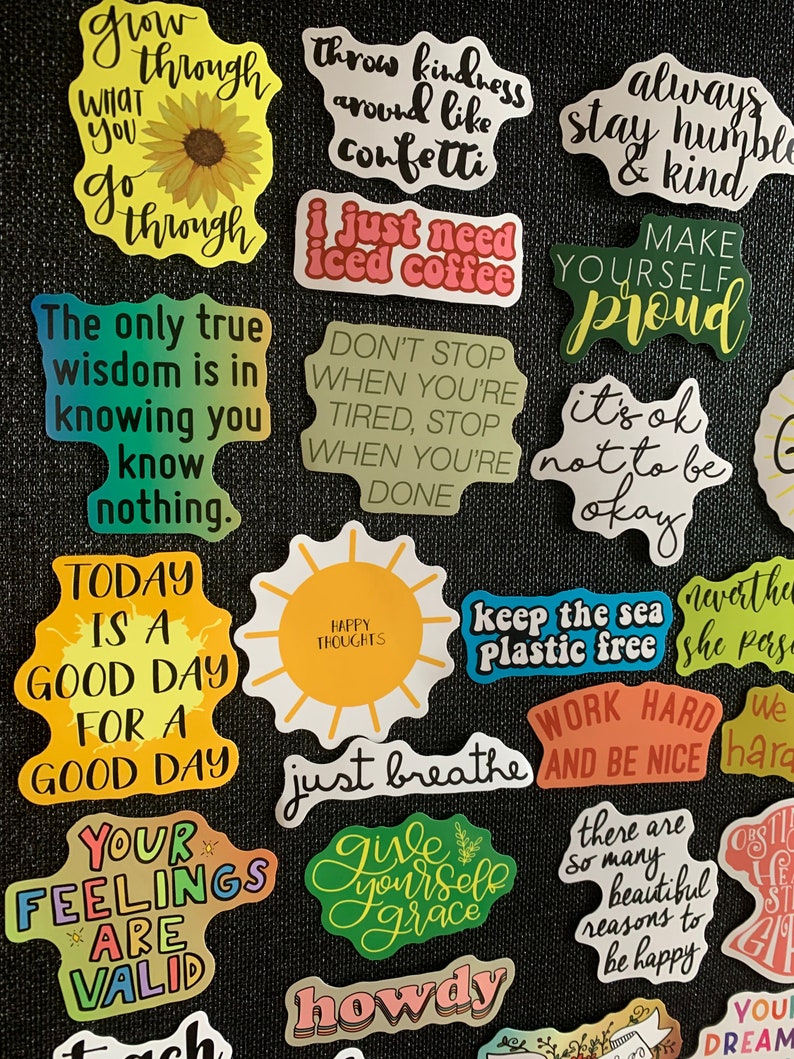 grow
through
WHAT
YOU
go
through
throw kindness
around like
confetti
always
stay humble
& kind
i just need
iced coffee
MAKE
YOURSELF
proud
The only true
wisdom is in
knowing you
know
nothing.
DON'T STOP
WHEN YOU'RE
TIRED, STOP
WHEN YOU'RE
DONE
it's ok
not to be
okay
TODAY
IS A
GOOD DAY
FOR A
GOOD DAY
HAPPY
THOUGHTS
keep the sea
plastic free
she
WORK HARD
AND BE NICE
we
just breathe
YOUR
FEELINGS
ARE
VALID
give
yourself
grace
there are
so many
beautiful
reasons to
be happy
howdy
YOUR